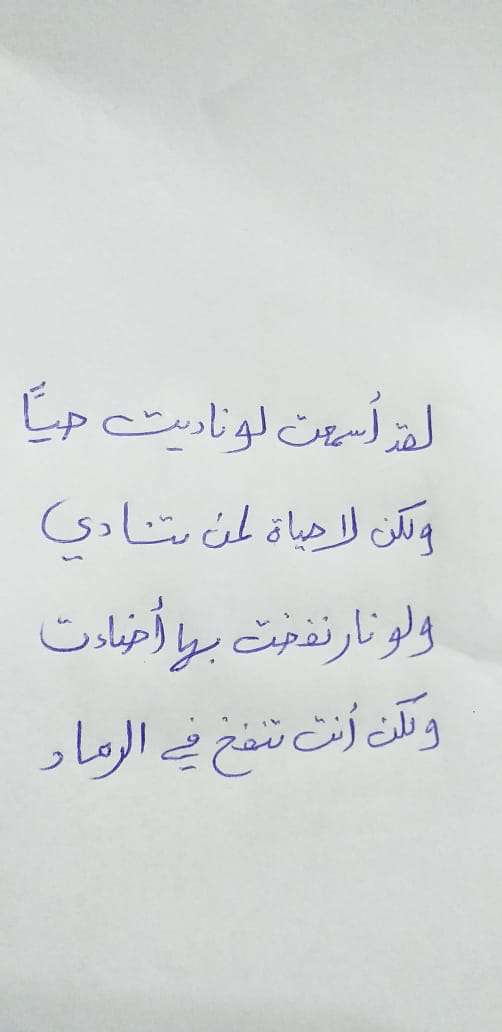 لقد أسمعت لو ناديت حيًّا
ولكن لا حياة لمن تنادي
ولو نار نفخت بها أضاءت
ولكن أنت تنفخ في الرماد